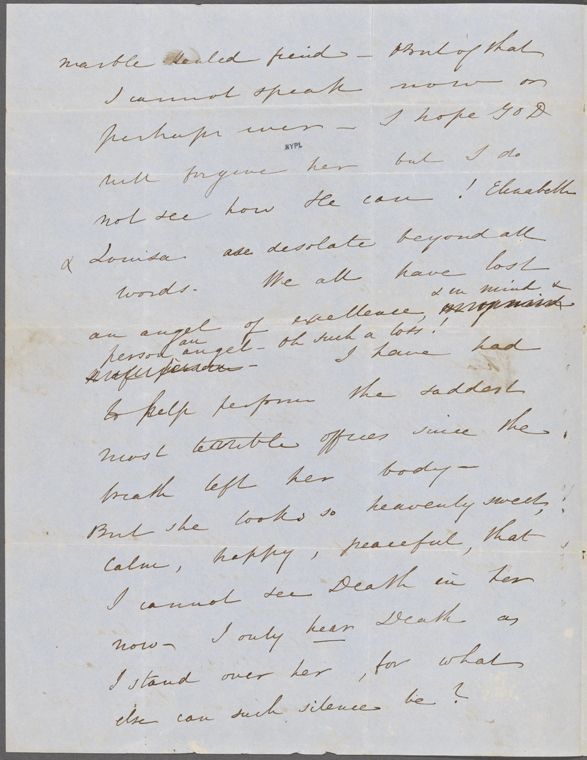 marble souled fiend – But of that
I cannot speak now or
perhaps ever – I hope GOD
NYPL
will forgive her but I do
not see how He can! Elizabeth
& Louisa are desolate beyond all
words. We all have lost
an angel of excellence, & in mind &
person an angel – oh such a loss!
– I have had
to help perform the saddest
most terrible offices since the
breath left her body –
But she looks so heavenly sweet,
calm, happy, peaceful, that
I cannot see Death in her
now – I only hear Death as
I stand over her, for what
else can such silence be?